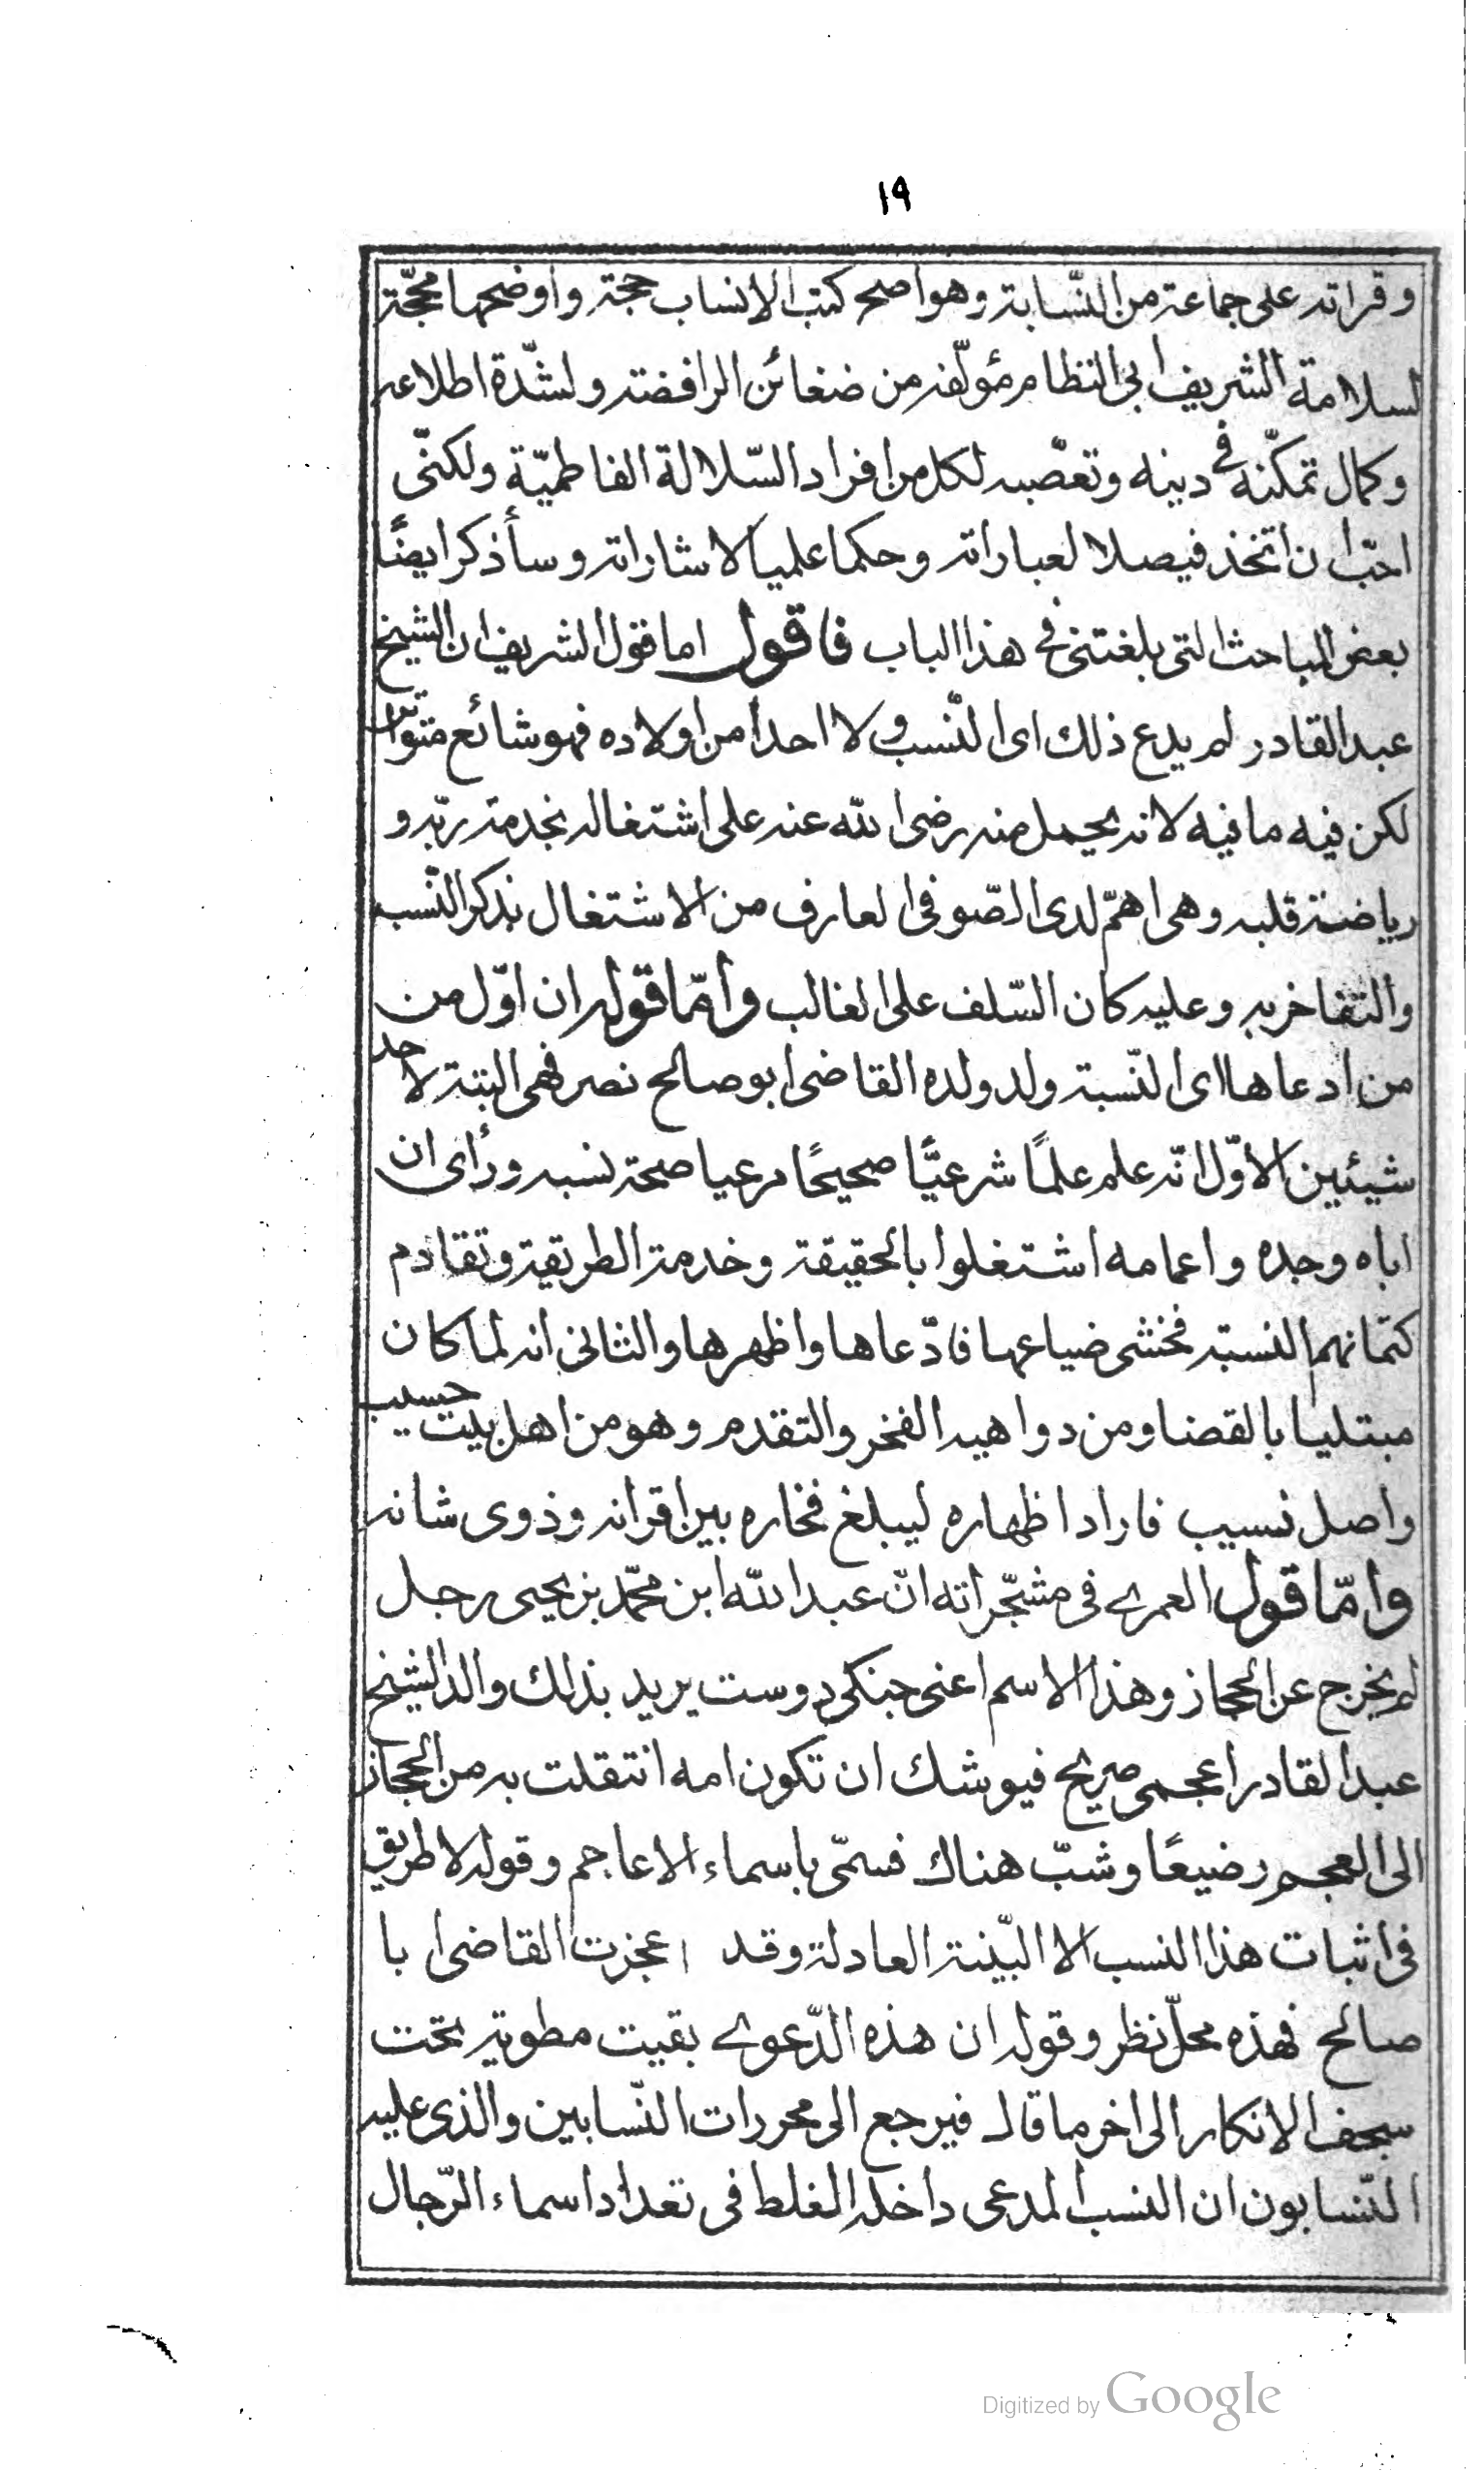 ١٩
وقراته على جماعة من النّسابة وهو اصح كتب الانساب حجة واوضحها محجّة
لسلامة الشريف ابى النظام مؤلّفه من ضغائن الرافضة ولشّدة اطلاعه
وكمال تمكّنه فى دينه وتعصّبه لكل من افراد السّلالة الفاطميّة ولكنّى
احبّ ان اتخذ فيصلا لعباراته وحكما علميا لاشاراته وسأذكر ايضًا
بعض المباحث التى بلغتنى فى هذا الباب فاقول اما قول الشريف ان الشيخ
عبد القادر لم يدع ذلك اى النّسب ولا احدا من اولاده فهو شائع متواتر
لكن فيه ما فيه لانه يحمل منه رضى الله عنه على اشتغاله بخدمة ربّه و
رياضة قلبه وهى اهمّ لدى الصّوفى العارف من الاشتغال بذكر النّسب
والتفاخر به وعليه كان السّلف على الغالب وامّا قوله ان اوّل من
من ادعاها اى النّسبة ولد ولده القاضى ابو صالح نصر فهى البتة لاحد
شيئين الاوّل انّه علم علمًا شرعيًّا صحيحًا مرعيا صحة نسبه ورأى ان
اباه وجده واعمامه اشتغلوا بالحقيقة وخدمة الطريقة وتقادم
كتمانهم النسبة فخشى ضياعها فادّعاها واظهرها والثانى انه لما كان
مبتليا بالقضا ومن دواهيه الفخر والتقدم وهو من اهل بيت حسيب
واصل نسيب فاراد اظهاره ليبلغ فخاره بين اقرانه وذوى شانه
وامّا قول العمرى فى مشجّراته انّ عبد الله ابن محمّد بن يحيى رجل
لم يخرج عن الحجاز وهذا الاسم اعنى جنكى دوست يريد بذلك والد الشيخ
عبد القادر اعجمى صريح فيوشك ان تكون امه انتقلت به من الحجاز
الى العجم رضيعًا وشبّ هناك فسمّى باسماء الاعاجم وقوله لا طريق
فى اثبات هذا النسب الا البّينة العادلة وقد اعجزت القاضى ابا
صالح فهذه محلّ نظر وقوله ان هذه الدّعوى بقيت مطوية تحت
سجف الانكار الى اخر ما قال فيرجع الى محررات النّسابين والذى عليه
النّسابون ان النسب المدعى داخله الغلط فى تعداد اسماء الرّجال
Digitized by Google